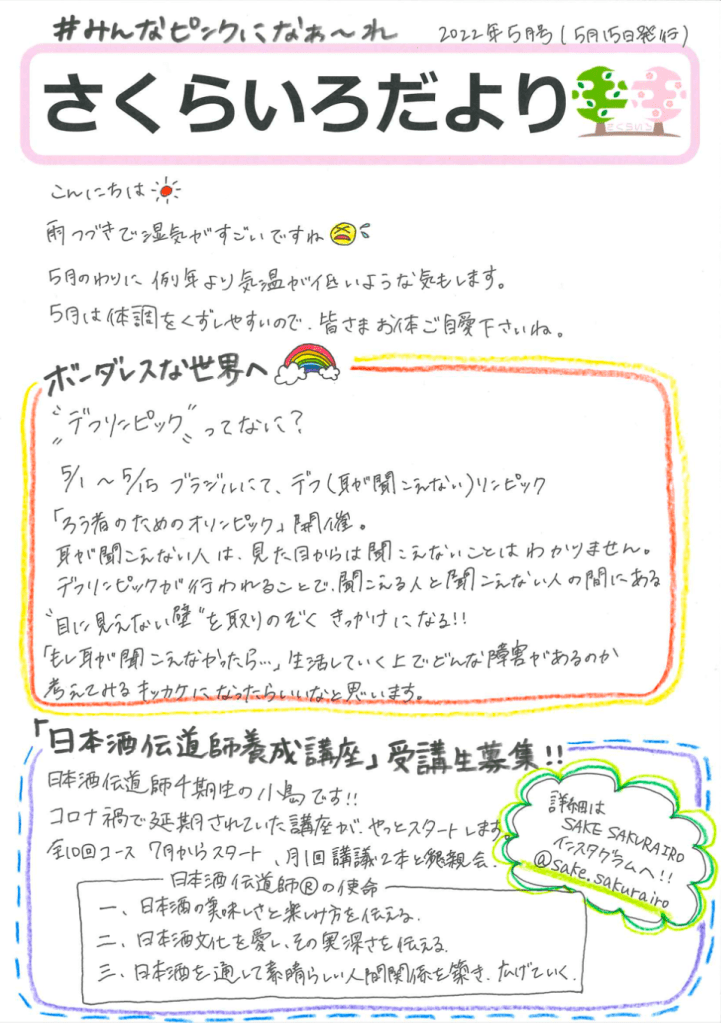 #みんなピンクになぁ〜れ
2022年5月号(5月15日発行)
さくらいろだより
さくらいろ
こんにちは
雨つづきで湿気がすごいですね
5月のわりに例年より気温が低いような気もします。
5月は体調をくずしやすいので、皆さまお体ご自愛下さいね。
ボーダレスな世界へ
"デフリンピック"ってなに?
5/1〜5/15 ブラジルにて、デフ(耳が聞こえない)リンピック
「ろう者のためのオリンピック」開催。
耳が聞こえない人は、見た目からは聞こえないことはわかりません。
デフリンピックが行われることで、聞こえる人と聞こえない人の間にある
"目に見えない壁"を取りのぞくきっかけになる!!
「もし耳が聞こえなかったら…」生活していく上でどんな障害があるのか
考えてみるキッカケになったらいいなと思います。
「日本酒伝道師養成講座」受講生募集!!
日本酒伝道師千期生の小島です!!
コロナ禍で延期されていた講座が、やっとスタートします。
全10回コース 7月からスタート、月1回講議2本と懇親会。
詳細は
SAKE SAKURAIRO
インスタグラムへ!!
@sake.sakurairo
日本酒伝道師®の使命
一、日本酒の美味しさと楽しけ方を伝える。
二、日本酒文化を愛し、その奥深さを伝える。
三、日本酒を通して素晴らしい人間関係を築き、広げていく。